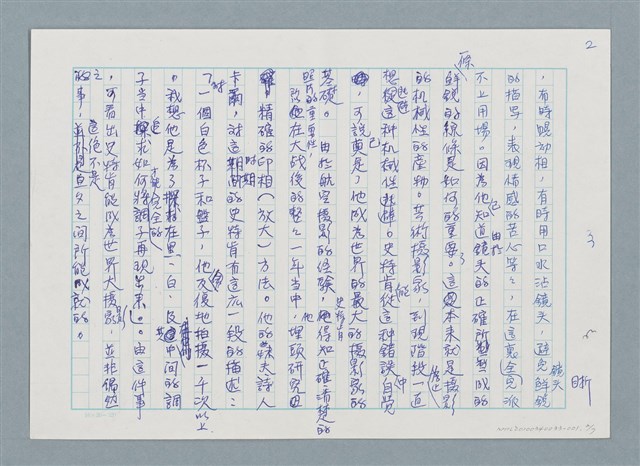 2
，有時晃動相，有時用口水沾鏡頭，避免鮮銳
的描写，表現情感的苦心等々，在這裏全完派
不上用場。因為他已知道由於鏡頭的正確所形成的
鮮銳的線條是如何的重要。這本來就是攝影
的机械性的產物。芸術攝影家，到現階段一直
想逃避這种机械性。史特肯能從這种錯誤自覺
，可說已奠定了他成為世界的最大的攝影家的
基礎。由於航空攝影的經驗，史特肯得知正確清楚的
照片的重要性，他在大战後的整々一年當中，埋頭研究
精確的印相（放大）方法。他的妹夫詩人
卡爾，對這時期的史特肯有這広一段的描述：
「对一個白色杯子和盤子，他反復地拍攝一千次以上
。我想他是為了在黑、白、及其中間的調
子當中追求如何才能完全的將調子再現出來」。由這件事
，可看出史特肯能成為世界大攝影家，並非偶然
之事，這絕不是一旦夕之間所能成就的。